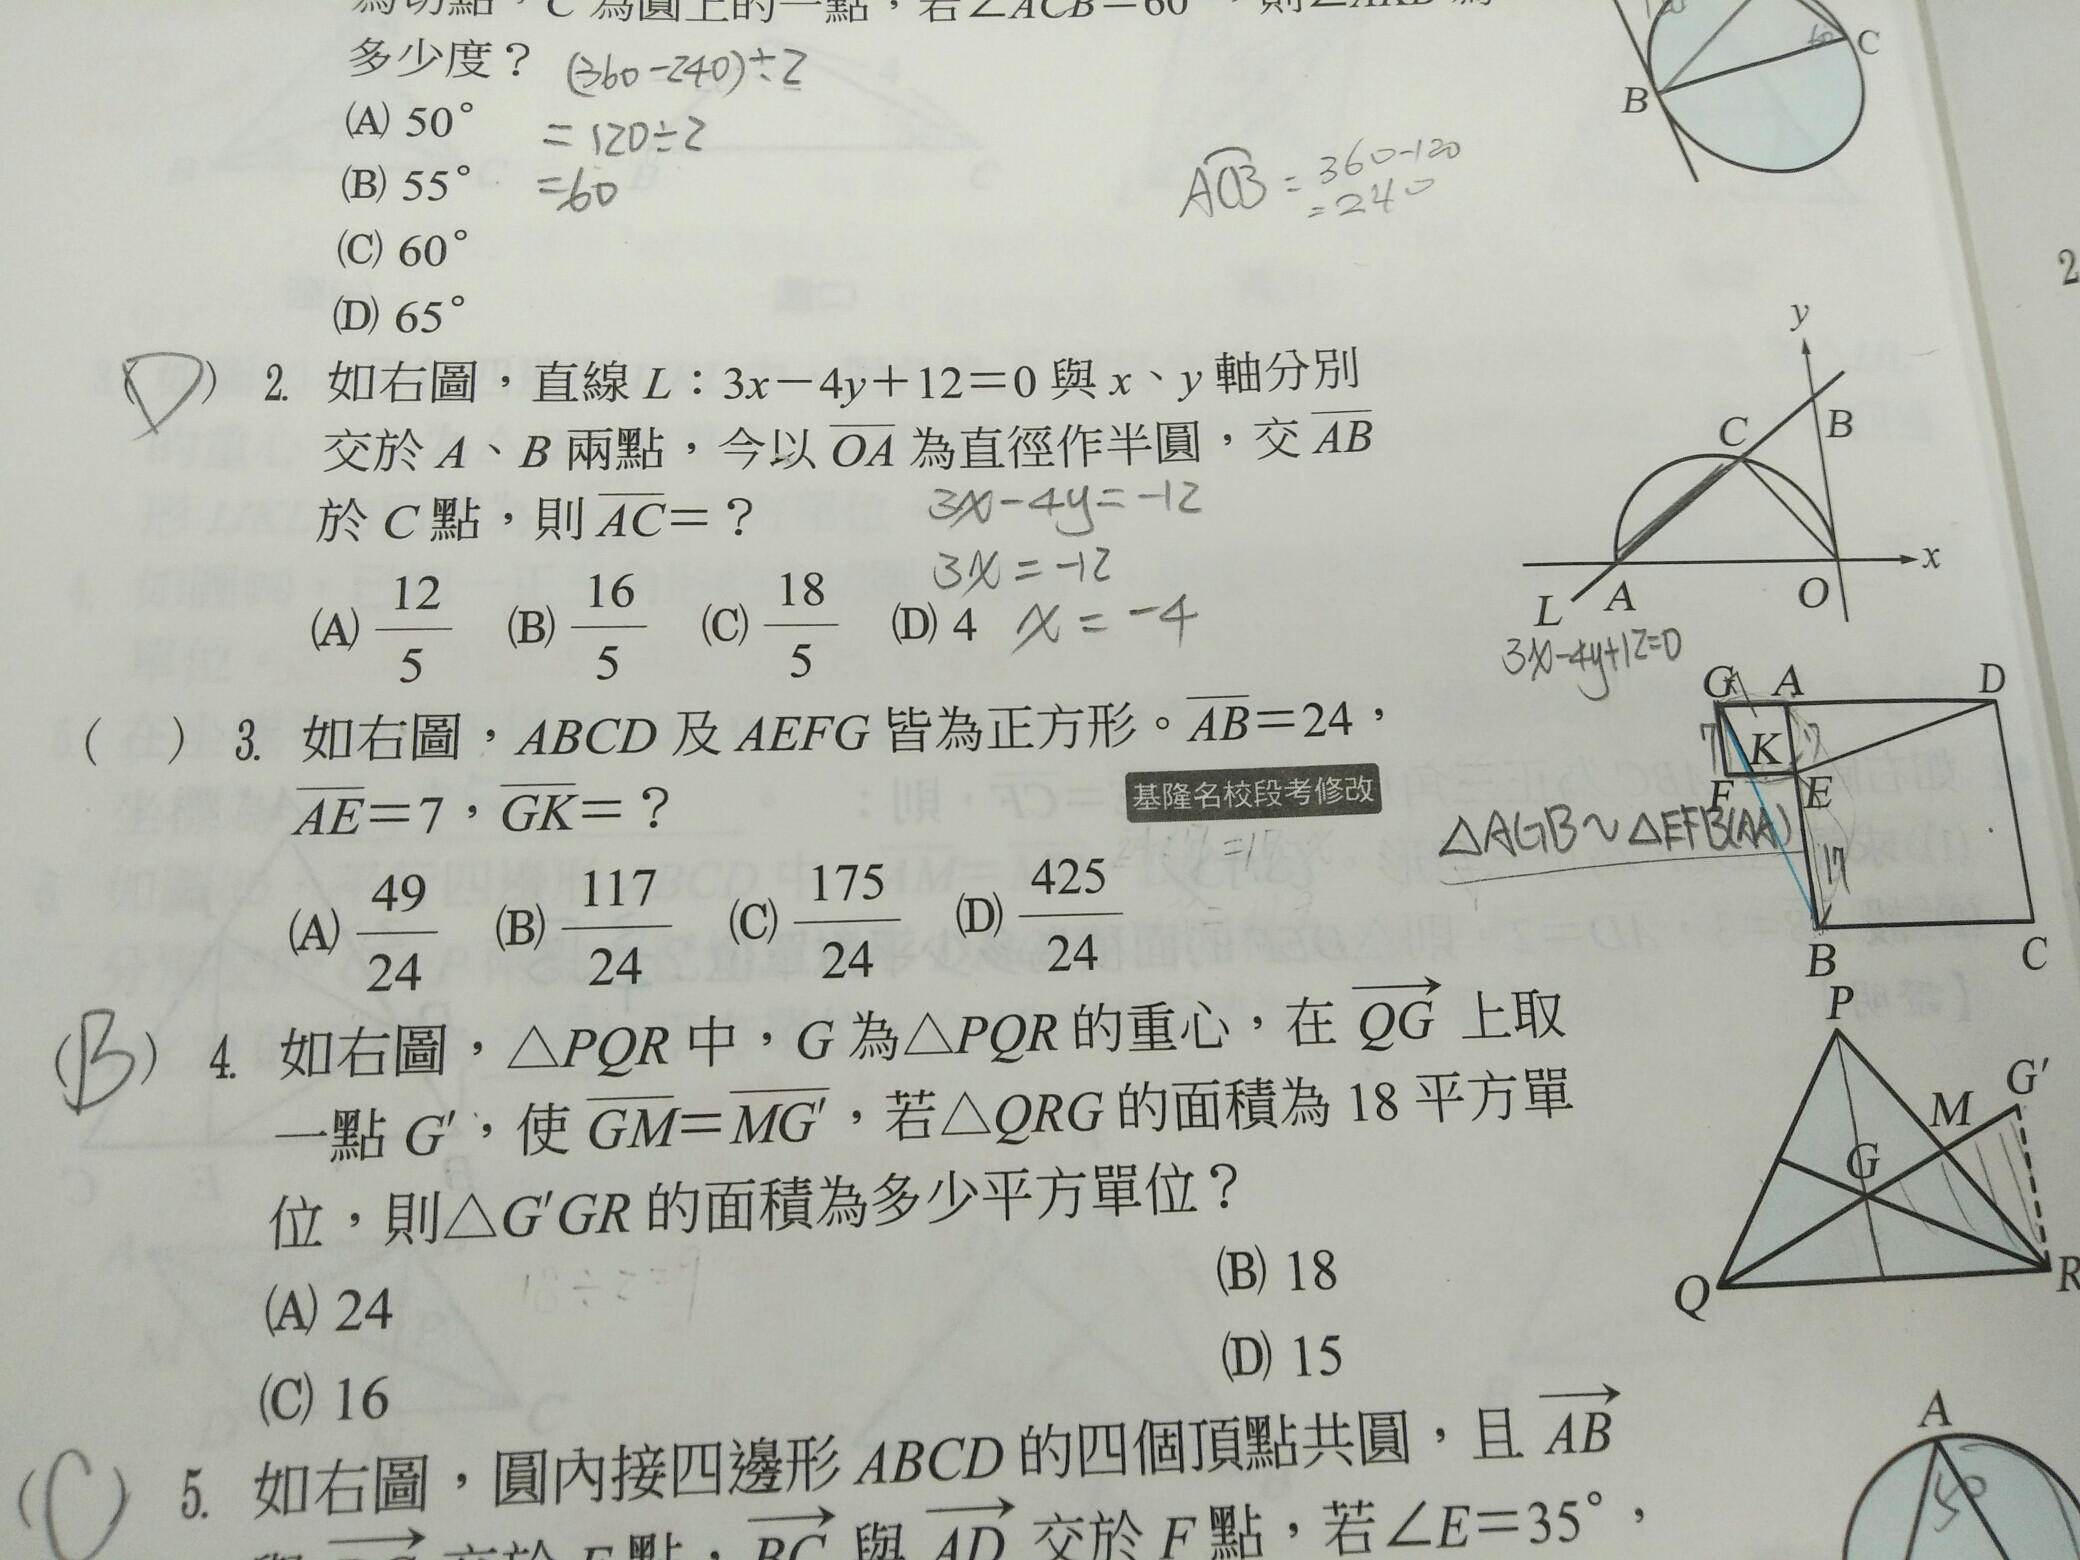 為切點，C 為圓上的一點，若∠ACB=60°，則∠AKB 為
多少度？ (360-240)÷2
(A) 50° = 120÷2
(B) 55° =60
(C) 60°
(D) 65°
ACB = 360-120
= 240
120
60
C
B
(D) 2. 如右圖，直線 L：3x－4y＋12＝0 與 x、y 軸分別
交於 A、B 兩點，今以 OA 為直徑作半圓，交 AB
於 C 點，則 AC＝？
3x-4y=-12
3x=-12
x=-4
(A) 12/5 (B) 16/5 (C) 18/5 (D) 4
y
C B
x
L A O
3x-4y+12=0
( ) 3. 如右圖，ABCD 及 AEFG 皆為正方形。AB＝24，
AE＝7，GK＝？ 基隆名校段考修改
(A) 49/24 (B) 117/24 (C) 175/24 (D) 425/24
G A D
7 K 7
F E
△AGB~△EFB(AA)
17
B C
(B) 4. 如右圖，△PQR 中，G 為△PQR 的重心，在 QG 上取
一點 G′，使 GM＝MG′，若△QRG 的面積為 18 平方單
位，則△G′GR 的面積為多少平方單位？
(A) 24 (B) 18
(C) 16 (D) 15
P
G′
M
G
Q R
(C) 5. 如右圖，圓內接四邊形 ABCD 的四個頂點共圓，且 AB
交於 E 點，BC 與 AD 交於 F 點，若∠E＝35°，
A
50
2